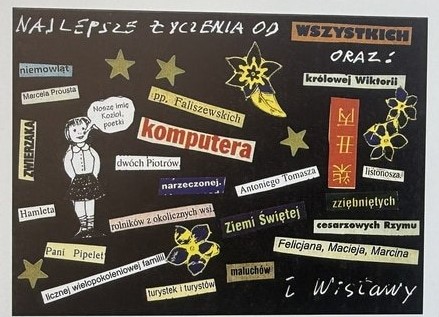 NAJLEPSZE ŻYCZENIA OD
WSZYSTKICH
ORAZ:
niemowląt
królowej Wiktorii
Marcela Prousta
pp. Faliszewskich
ZWIERZAKA
Noszę imię
Kozioł,
poetki
komputera
dwóch Piotrów.
listonosza,
narzeczonej.
Antoniego Tomasza
zziębniętych
Hamleta
rolników z okolicznych wsi,
Ziemi Świętej
cesarzowych Rzymu
Pani Pipelet
Felicjana, Macieja, Marcina
licznej wielopokoleniowej familii
maluchów
turystek i turystów
i Wisławy